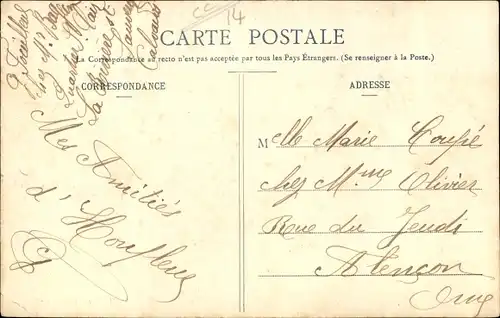 14
CARTE POSTALE
La Correspondance au recto n'est pas acceptée par tous les Pays Étrangers. (Se renseigner à la Poste.)
CORRESPONDANCE
Mes Amitiés
d'Honfleur
ADRESSE
Mlle Marie Coupé
chez Mme Olivier
Rue du Jeudi
Alençon
Orne
La Rivière St
Sauveur
Calvados